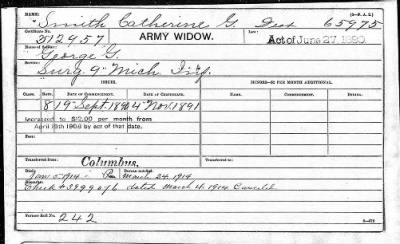 NAME: Smith Catherine G. 65975
Certificate No. ARMY WIDOW. Law:
512957 Act of June 27, 1890.
Name of Soldier:
George G.
Service:
Surg. 9" Mich. Inf.
ISSUE.
CLASS. RATE. DATE OF COMMENCEMENT. DATE OF CERTIFICATE. RATE. DATE OF COMMENCEMENT. DATE OF CERTIFICATE.
8 19 Sept. 1890 4 Nov. 1891
Increased to $12.00 per month from
April 19th 1908 by act of that date.
Transferred from Columbus, Transferred to
Died: Jan 5-1914 Bureau notified: March 24, 1914
Check #3999276 dated March 4, 1914 Canceled
Former Roll No. 242